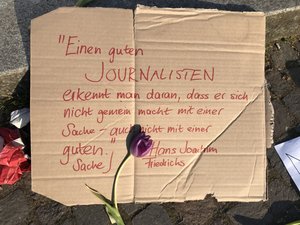 "Einen guten
JOURNALISTEN
erkennt man daran, dass er sich
nicht gemein macht mit einer
Sache – auch nicht mit einer
guten."
Sache
Hans Joachim
Friedrichs